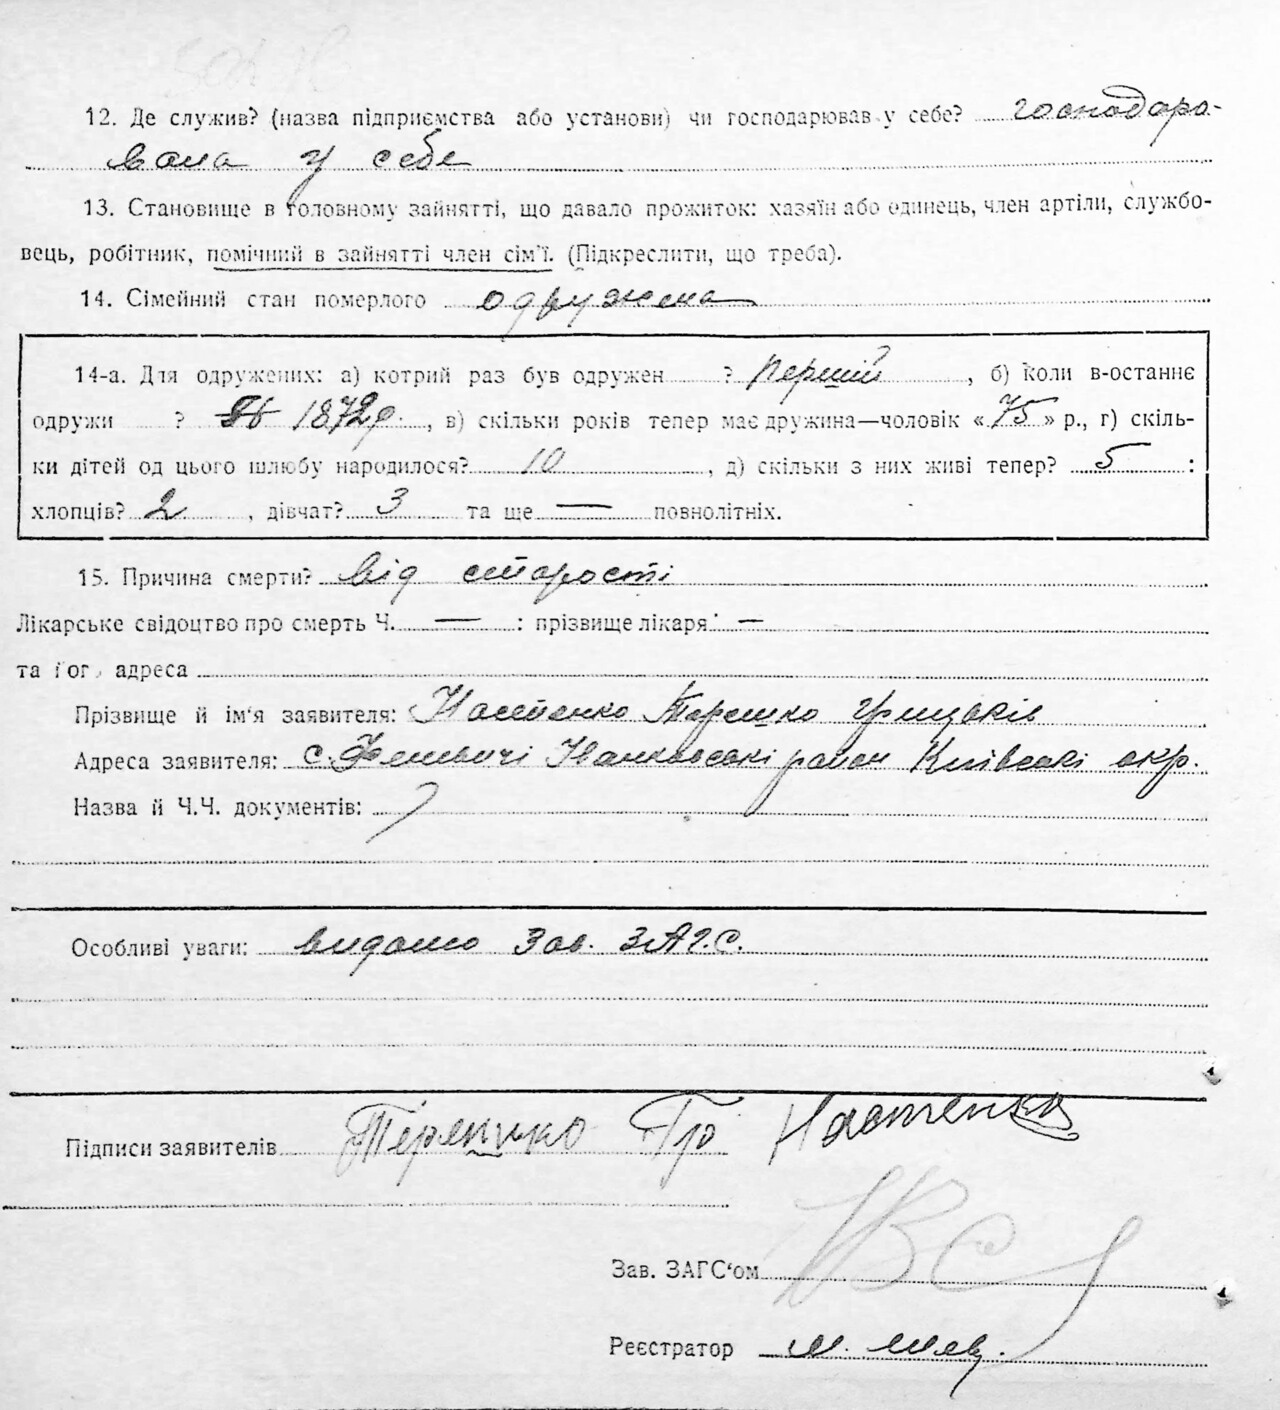 12. Де служив? (назва підприємства або установи) чи господарював у себе? господаро-
вала у себе
13. Становище в головному зайнятті, що давало прожиток: хазяїн або одинець, член артіли, службо-
вець, робітник, помічний в зайнятті член сім'ї. (Підкреслити, що треба).
14. Сімейний стан померлого одружена
14-а. Для одружених: а) котрий раз був одружен ? перший, б) коли в-останнє
одружи ? 1872р., в) скільки років тепер має дружина—чоловік «75» р., г) скіль-
ки дітей од цього шлюбу народилося? 10, д) скільки з них живі тепер? 5:
хлопців? 2, дівчат? 3 та ще — повнолітніх.
15. Причина смерти? від старості
Лікарське свідоцтво про смерть Ч. — : прізвище лікаря: —
та його адреса
Прізвище й ім'я заявителя: Настенко Терешко Грицьків
Адреса заявителя: с. район Київські окр.
Назва й Ч.Ч. документів:
Особливі уваги: видано Зав. ЗАГ.С.
Підписи заявителів Терешко Гр Настенко
Зав. ЗАГС'ом
Реєстратор М.